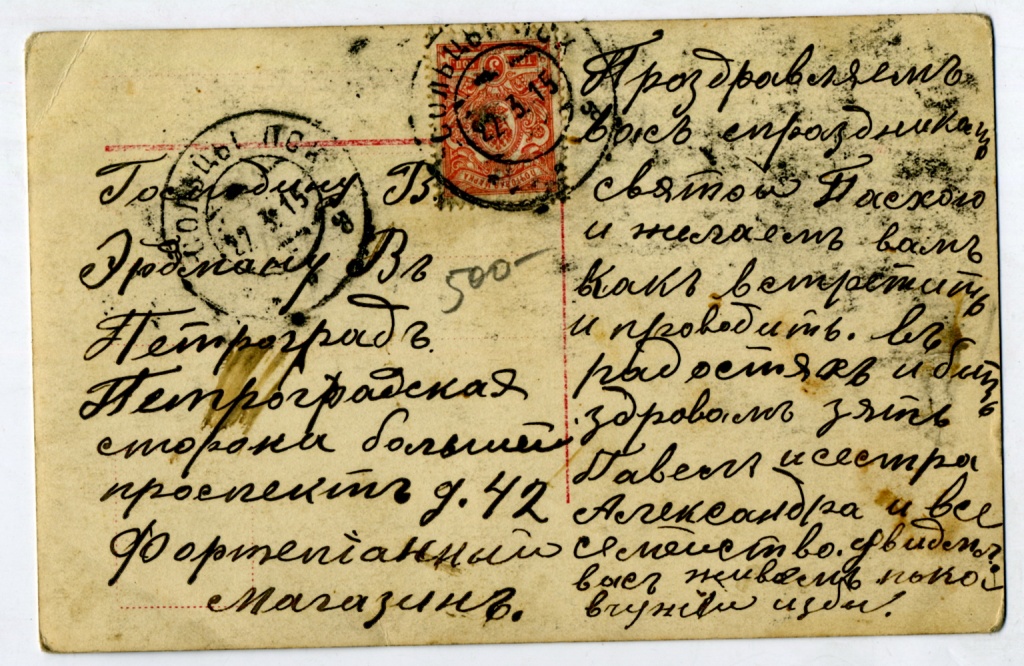 СОЛЬЦЫ ПСК
27.3.15
СОЛЬЦЫ ПСК
27.3.15
Господину В
Эрдману Въ
Петроградъ.
Петроградская
сторона большей
проспектъ д. 42
Фортепіанный
Магазинъ.
500-
Проздравляемъ
васъ спраздника
святой Пасхою
и желаемъ вамъ
какъ встретить
и проводить. въ
радостяхъ и бить
здровамъ зять
Павелъ и сестра
Александра и все
семейство.
васъ живемъ
вчужіи изби.